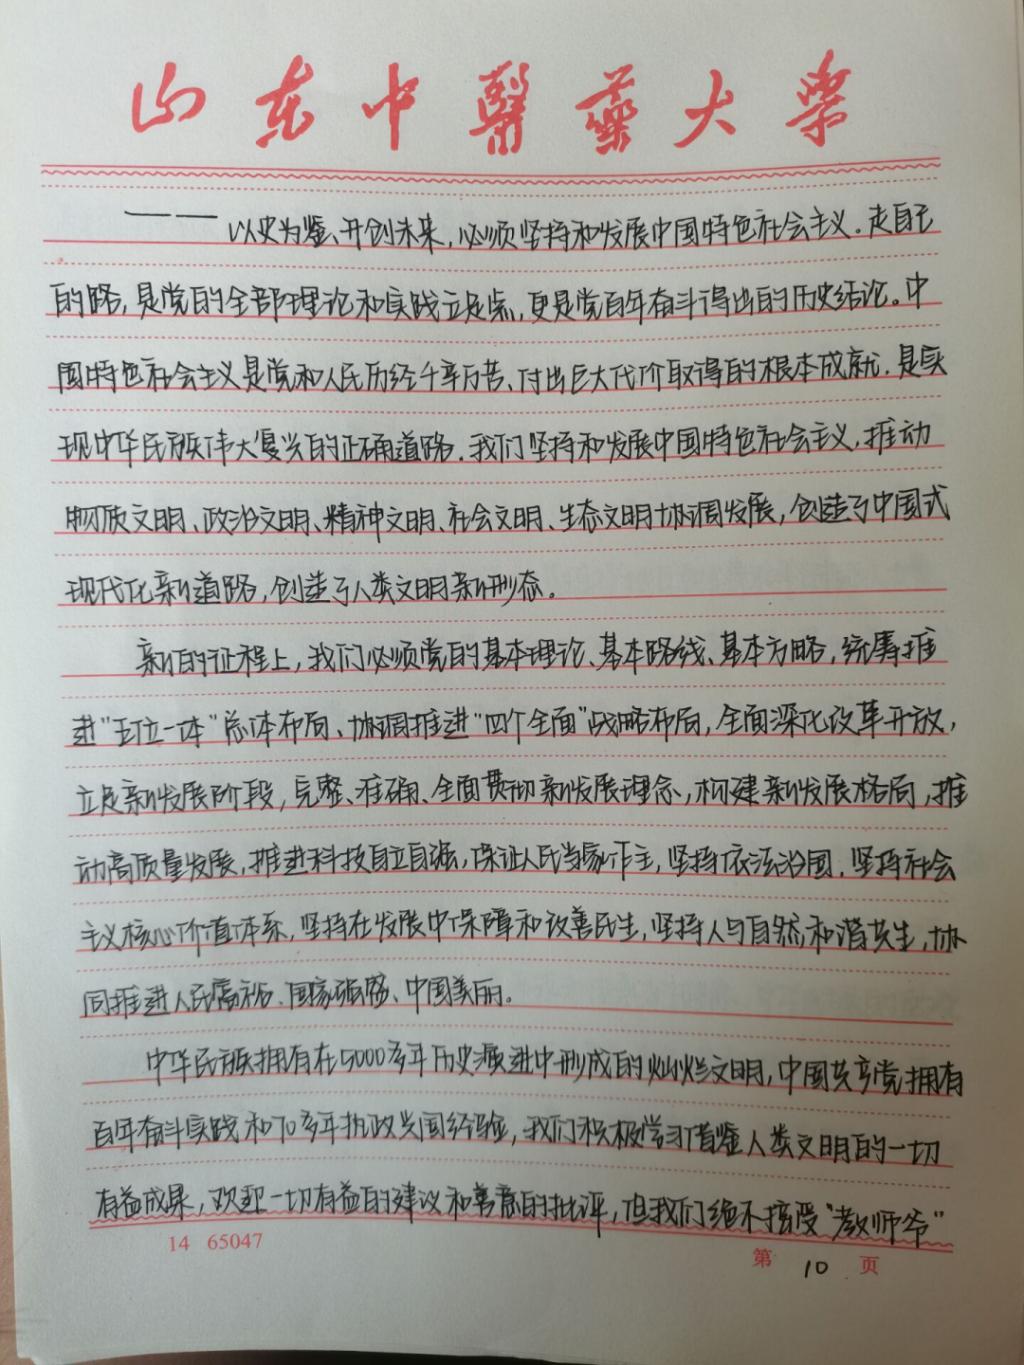 山东中医药大学
——以史为鉴、开创未来，必须坚持和发展中国特色社会主义。走自己
的路，是党的全部理论和实践立足点，更是党百年奋斗得出的历史结论。中
国特色社会主义是党和人民历经千辛万苦、付出巨大代价取得的根本成就，是实
现中华民族伟大复兴的正确道路。我们坚持和发展中国特色社会主义，推动
物质文明、政治文明、精神文明、社会文明、生态文明协调发展，创造了中国式
现代化新道路，创造了人类文明新形态。
新的征程上，我们必须党的基本理论、基本路线、基本方略，统筹推
进“五位一体”总体布局、协调推进“四个全面”战略布局，全面深化改革开放，
立足新发展阶段，完整、准确、全面贯彻新发展理念，构建新发展格局，推
动高质量发展，推进科技自立自强，保证人民当家作主，坚持依法治国，坚持社会
主义核心价值体系，坚持在发展中保障和改善民生，坚持人与自然和谐共生，协
同推进人民富裕、国家强盛、中国美丽。
中华民族拥有在5000多年历史演进中形成的灿烂文明，中国共产党拥有
百年奋斗实践和70多年执政兴国经验，我们积极学习借鉴人类文明的一切
有益成果，欢迎一切有益的建议和善意的批评，但我们绝不接受“教师爷”
14 65047
第 10 页